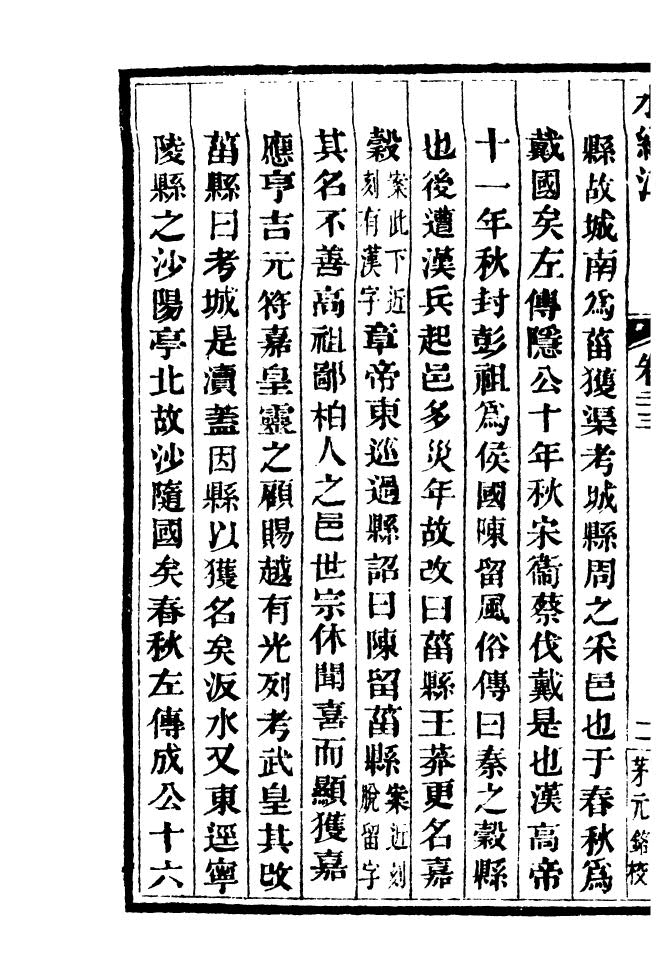 水經注 卷二十三 二 茅元銘校
縣故城南爲菑獲渠考城縣周之采邑也于春秋爲
戴國矣左傳隱公十年秋宋衞蔡伐戴是也漢高帝
十一年秋封彭祖爲侯國陳留風俗傳曰秦之穀縣
也後遭漢兵起邑多災年故改曰菑縣王莽更名嘉
穀案此下近刻有漢字章帝東巡過縣詔曰陳留菑縣案近刻脫留字
其名不善高祖鄙柏人之邑世宗休聞喜而顯獲嘉
應亨吉元符嘉皇靈之顧賜越有光列考武皇其改
菑縣曰考城是瀆蓋因縣以獲名矣汳水又東逕寧
陵縣之沙陽亭北故沙隨國矣春秋左傳成公十六